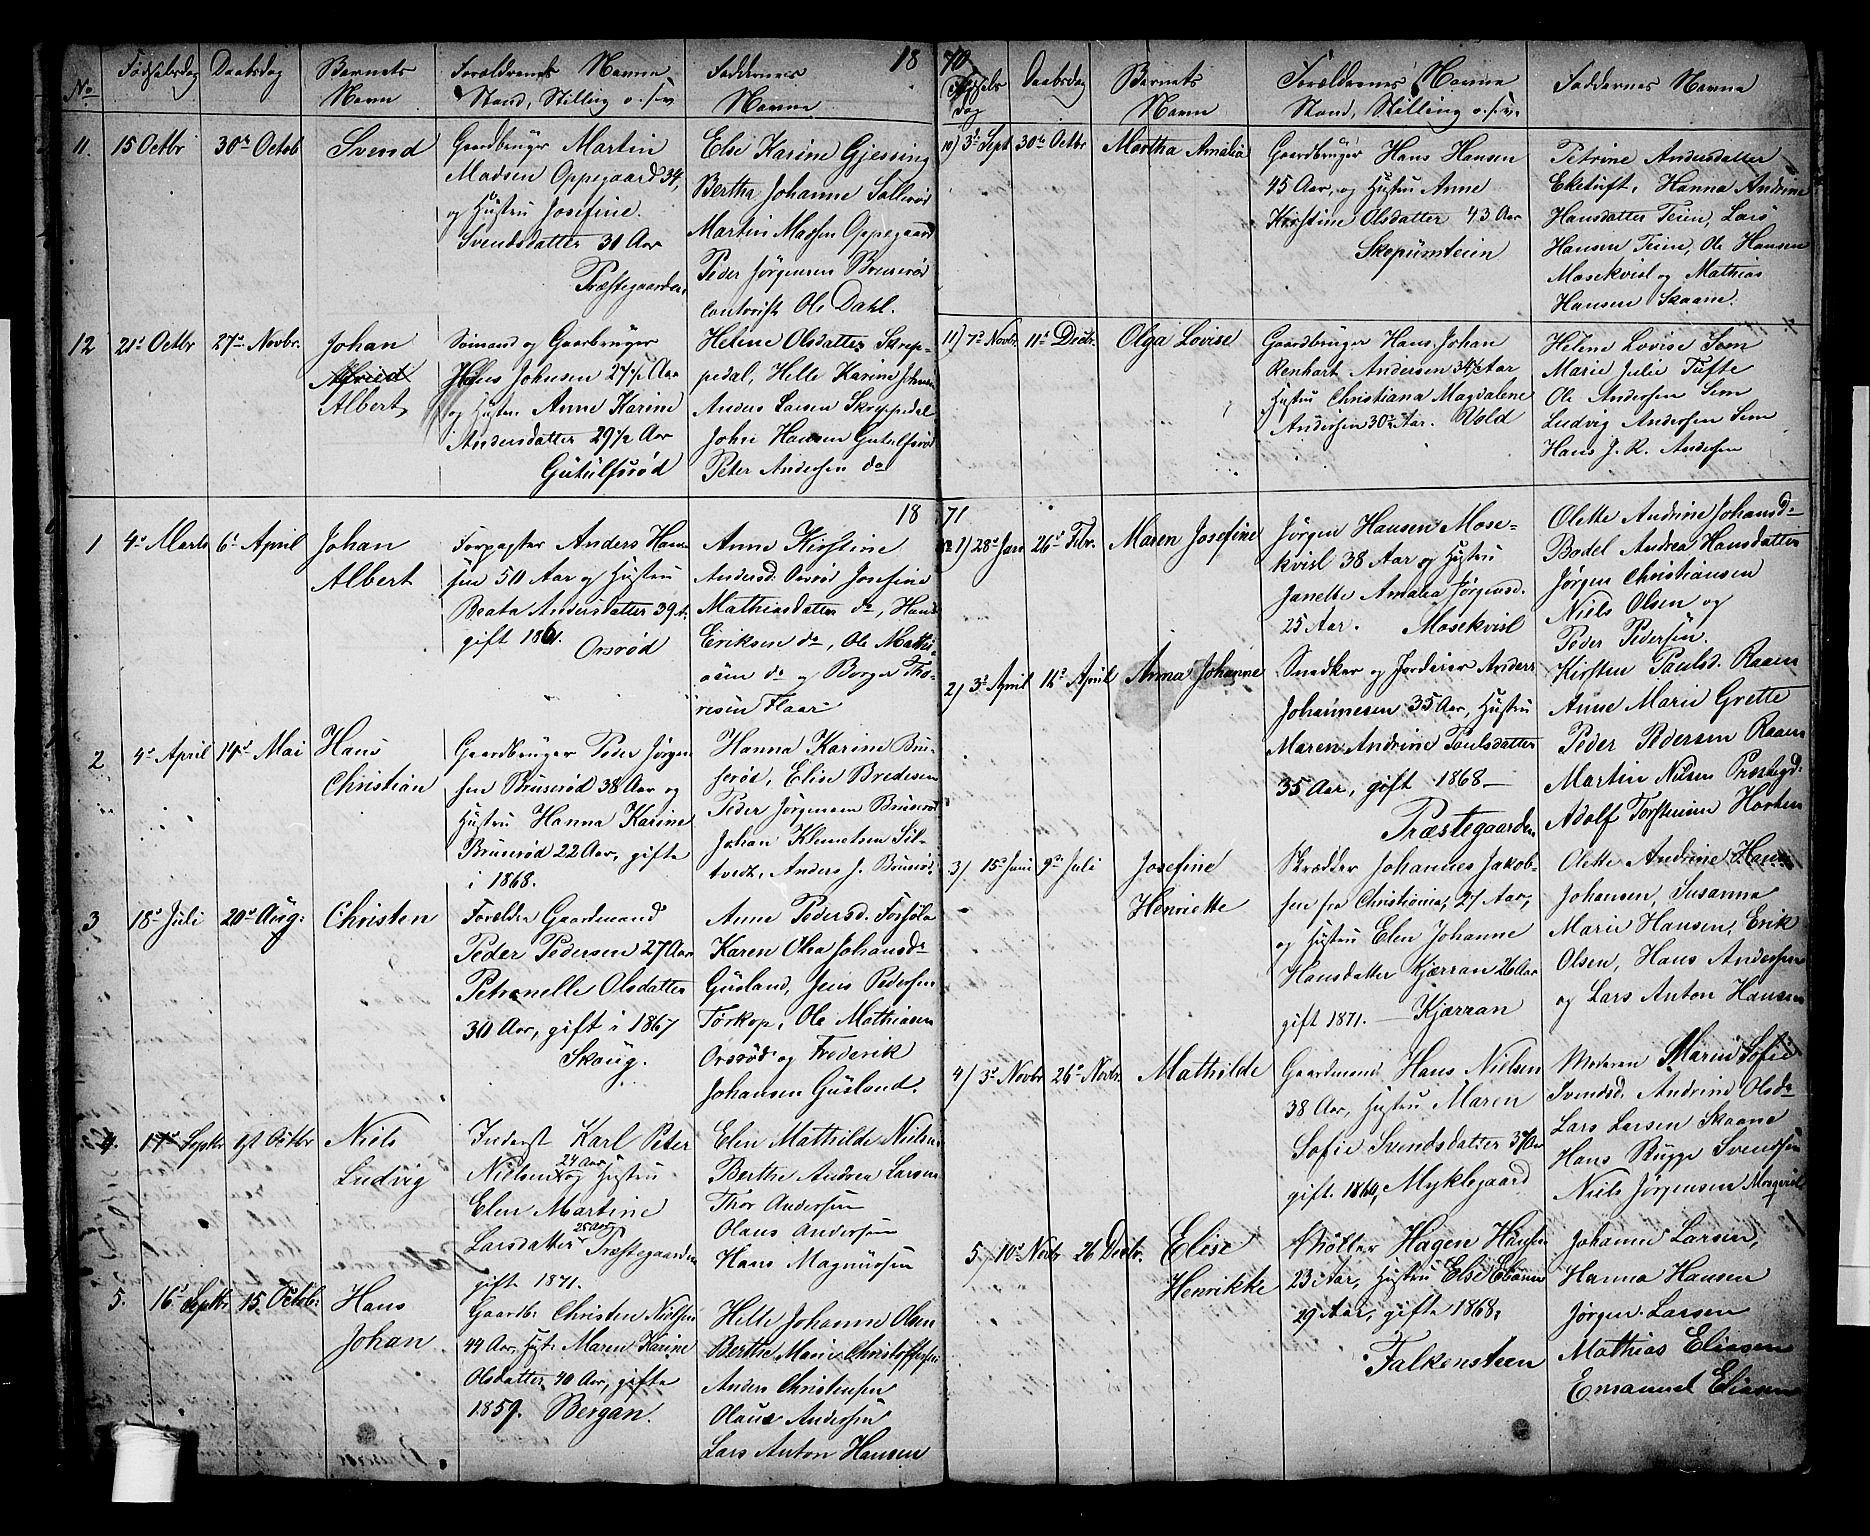 18
No
Fødselsdag
Daabsdag
Barnets
Navn
Forældrenes Navne
Stand, Stilling o.s.v.
Faddernes
Navne
11.
15 Octbr
30te Octob
Svend
Gaardbruger Martin
Madsen Oppegaard 34,
og Hustru Josefine
Svendsdatter 31 Aar
Præstegaarden
Else Karine Gjessing
Bertha Johanne Sollerød
Martin Madsen Oppegaard
Peder Jørgensen Bruserød
Contorist Ole Dahl.
12
21de Octbr
27de Novbr.
Johan
Alfried
Albert
Sømand og Gaarbruger
Hans Johnsen 27½ Aar
og Hustru Anne Karine
Andersdatter 29½ Aar
Gutulfsrød
Helene Olsdatter Skrep-
pedal, Helle Karine Johnsen
Anders Larsen Skreppedal
John Hansen Gutulfsrød
Peter Andersen do
18
1
4de Marts
6te April
Johan
Albert
Forpagter Anders Han-
sen 50 Aar og Hustru
Beata Andersdatter 39 A.
gift 1861.
Orsrød
Anne Kirstine
Andersd. Orsrød Josefine
Mathiasdatter do, Hans
Eriksen do, Ole Mathi-
asen do og Borger Tho-
resen Flaar
2
4de April
14de Mai
Hans
Christian
Gaardbruger Peder Jørgen
sen Bruserød 38 Aar og
Hustru Hanna Karine
Bruserød 22 Aar, gifte
i 1868.
Hanna Karine Bru-
serød, Elise Bredesen
Peder Jørgensen Bruserød
Johan Klemetsen Sil-
tvedt, Anders J. Bruserød.
3
18de Juli
20de Aug:
Christen
Forældre Gaardmand
Peder Pedersen 27 Aar
Petronelle Olsdatter
30 Aar, gift i 1867
Skaug.
Anne Pedersd.
Karen Olea Johansdr
Gusland, Jens Pedersen
Torkop, Ole Mathiasen
Orsrød og Frederik
Johansen Gusland.
4.
17de Septbr
1st Octbr
Niels
Ludvig
Inderst Karl Peter
Nielsen 24 Aar og Hustru
Elen Martine
Larsdatter 25 Aar Præstegaarden
gift 1871.
Elen Mathilde Nielsen
Berthe Andrea Larsen
Thor Andersen
Olaus Andersen
Hans Magnussen
5.
16de Septbr
15. Octob:
Hans
Johan
Gaardbr Christen Nielsen
44 Aar, Hust. Maren Karine
Olsdatter 40 Aar, gifte
1859. Bergan.
Helle Johanne Olsen
Berthe Marie Christoffersen
Anders Christensen
Olaus Andersen
Lars Anton Hansen
70
Fødsels
dag
Daabsdag
Barnets
Navn
Forældrenes Navne
Stand, Stilling o.s.v.
Faddernes Navne
10) 3de Sept
30te Octbr
Martha Amalia
Gaardbruger Hans Hansen
45 Aar, og Hustru Anne
Kirstine Olsdatter 43 Aar
Skopumteien
Petrine Andersdatter
Eketuft, Hanna Andrine
Hansdatter Teien, Lars
Hansen Teien, Ole Hansen
Mosekvisl og Mathias
Hansen Skaane.
11) 7de Novbr.
11te Decbr.
Olga Lovise
Gaardbruger Hans Johan
Renhart Andersen 34½ Aar
Hustru Christiana Magdalene
Andersen 30 Aar. Vold
Helene Lovise Sem
Marie Julie Tufte
Ole Andersen Sem
Ludvig Andersen Sem
Hans J. R. Andersen
71
1) 28de Jan
26de Febr.
Maren Josefine
Jørgen Hansen Mose-
kvisl 38 Aar og Hustru
Janette Amalia Jørgensd.
25 Aar. Mosekvisl
Olette Andrine Johansd-
Bodel Andrea Hansdatter
Jørgen Christiansen
Niels Olsen og
Peder Pedersen.
2) 3de April
16de April
Anna Johanne
Snedker og Jordeier Anders
Johannesen 35 Aar, Hustru
Maren Andrine Paulsdatter
35 Aar, gift 1868 —
Præstegaarden
Kirsten Paulsd. Raaen
Anne Marie Grette
Peder Pedersen Raaen
Martin Nielsen Præstegd:
Adolf Torstensen Horten
3) 15de Juni
9de Juli
Josefine
Henriette
Skrædder Johannes Jakob-
sen fra Christiania, 27 Aar,
og Hustru Elen Johanne
Hansdatter Kjærran 26 Aar
gift 1871. — Kjærran
Olette Andrine Hans
Johansen, Susanna
Marie Hansen, Erik
Olsen, Hans Andersen
og Lars Anton Hansen
4) 3de Novbr
26de Novbr.
Mathilde
Gaardmand Hans Nielsen
38 Aar, Hustru Maren
Sofie Svendsdatter 37 Aar
gift 1864, Myklegaard
Moderen Maren Sofie
Svendsd. Andrine Olsdr
Lars Larsen Skaane
Hans Bugge Svendsen
Niels Jørgensen Moqvisl
5) 10de Novbr
26 Decbr.
Elise
Henrikke
Møller Hagen Hansen
23 Aar, Hustru Else
29 Aar, gifte 1868,
Falkensteen
Johanne Larsen,
Hanna Hansen
Jørgen Larsen
Mathias Eliasen
Emanuel Eliasen